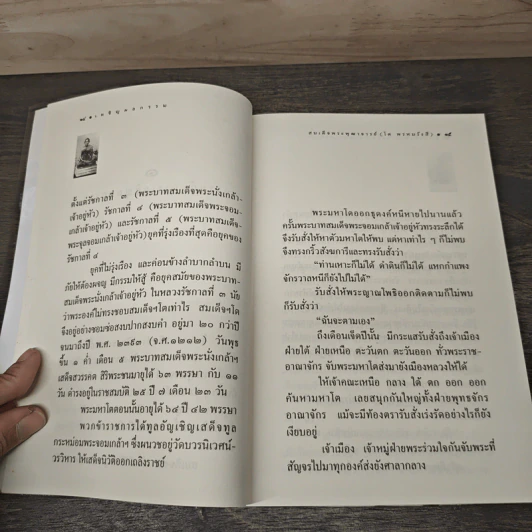 ๘ • เจริญผลกรรม
ตั้งแต่รัชกาลที่ ๓ (พระบาทสมเด็จพระนั่งเกล้า-
เจ้าอยู่หัว) รัชกาลที่ ๔ (พระบาทสมเด็จพระจอม-
เกล้าเจ้าอยู่หัว) และรัชกาลที่ ๕ (พระบาทสมเด็จ-
พระจุลจอมเกล้าเจ้าอยู่หัว) ยุคที่รุ่งเรืองที่สุดคือยุคของ
รัชกาลที่ ๔
ยุคที่ไม่รุ่งเรือง และค่อนข้างลำบากลำบน มี
ภัยให้ต้องผจญ มีกรรมให้สู้ คือยุคสมัยของพระบาท-
สมเด็จพระนั่งเกล้าเจ้าอยู่หัว ในหลวงรัชกาลที่ ๓ มัย
ว่าพระองค์ไม่ทรงชอบสมเด็จฯโตเท่าไร สมเด็จฯโต
จึงอยู่อย่างซอมซ่อสงบปากสงบคำ อยู่มา ๒๐ กว่าปี
จนมาถึงปี พ.ศ. ๒๓๙๓ (จ.ศ.๑๒๑๒) วันพุธ
ขึ้น ๑ ค่ำ เดือน ๕ พระบาทสมเด็จพระนั่งเกล้าฯ
เสด็จสวรรคต สิริพระชนมายุได้ ๖๓ พรรษา กับ ๑๑
วัน ดำรงอยู่ในราชสมบัติ ๒๕ ปี ๗ เดือน ๒๓ วัน
พระมหาโตตอนนั้นอายุได้ ๖๔ ปี ๔๒ พรรษา
พวกข้าราชการได้ทูลอัญเชิญเสด็จทูล
กระหม่อมพระจอมเกล้าฯ ซึ่งผนวชอยู่วัดบวรนิเวศน์-
วรวิหาร ให้เสด็จนิวัติออกเถลิงราชย์
สมเด็จพระพุฒาจารย์ (โต พรหมรังสี) •
พระมหาโตออกธุดงค์หนีหายไปนานแล้ว
ครั้นพระบาทสมเด็จพระจอมเกล้าเจ้าอยู่หัวทรงระลึกได้
จึงรับสั่งให้หาตัวมหาโตให้พบ แต่หาเท่าไร ๆ ก็ไม่พบ
จึงทรงกริ้วสังฆการีและทรงรับสั่งว่า
“ท่านเหาะก็ไม่ได้ ดำดินก็ไม่ได้ แหกกำแพง
จักรวาลหนีก็ยังไปไม่ได้”
รับสั่งให้พระญาณโพธิออกติดตามก็ไม่พบ
ก็รับสั่งว่า
“ฉันจะตามเอง”
ถึงเดือนเจ็ดปีนั้น มีกระแสรับสั่งถึงเจ้าเมือง
ฝ่ายใต้ ฝ่ายเหนือ ตะวันตก ตะวันออก ทั่วพระราช-
อาณาจักร จับพระมหาโตส่งมายังเมืองหลวงให้ได้
ให้เจ้าคณะเหนือ กลาง ใต้ ตก ออก ออก
ค้นหามหาโต เลยสนุกกันใหญ่ทั้งฝ่ายพุทธจักร
อาณาจักร แม้จะมีท้องตรารับสั่งเร่งรัดอย่างไรก็ยัง
เงียบอยู่
เจ้าเมือง เจ้าหมู่ฝ่ายพระร่วมใจกันจับพระที่
สัญจรไปมาทุกองค์ส่งยังศาลากลาง